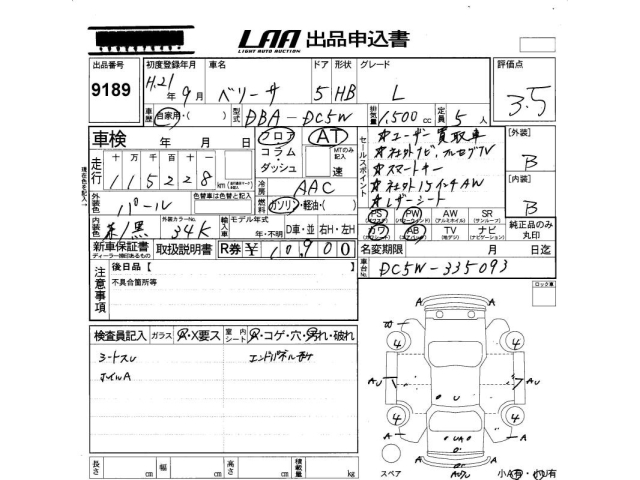 LAA 出品申込書
LIGHT AUTO AUCTION
出品番号 初度登録年月 車名 ドア 形状 グレード 評価点
9189 H.21年 9月 ベリーサ 5 HB L 3.5
車歴 自家用・( ) 型式 DBA-DC5W 排気量 1,500cc 定員 5人
車検 年 月 日 フロア AT セールスポイント ☆ユーザー買取車 [外装]
コラム・ダッシュ MTのみ記入 速 ☆社外ナビ、フルセグTV B
走行 十万千百十一 ☆スマートキー
115228km 冷房 AAC ☆社外15インチAW [内装]
現車色を記入 外装色 パール 色替車は色替と記入 燃料 ガソリン・軽油・( ) ☆レザーシート B
内装色 赤/黒 外装カラーNo. 34K 輸入車 モデル年式 年・不明 D車・並 右H・左H
PS (パワステ) PW (パワーウィンド) AW (アルミホイル) SR (サンルーフ)
カワ AB (エアーバック) TV (テレビ) ナビ (ナビゲーション) 純正品のみ丸印
新車保証書 ディーラー捺印あるもの 取扱説明書 R券 ¥10,900 名変期限 月 日迄
注意事項 後日品【 車台No. DC5W-335093
不具合箇所等 ロック車
検査員記入 ガラス A・X要ス 室内シート A・コゲ・穴・汚れ・破れ
シートスレ
ホイルA
W
4 4
A AU U A
U
4 4
A UA A
A
長さ cm 幅 cm 高さ cm 積載量 kg
スペア 小A有・小U有